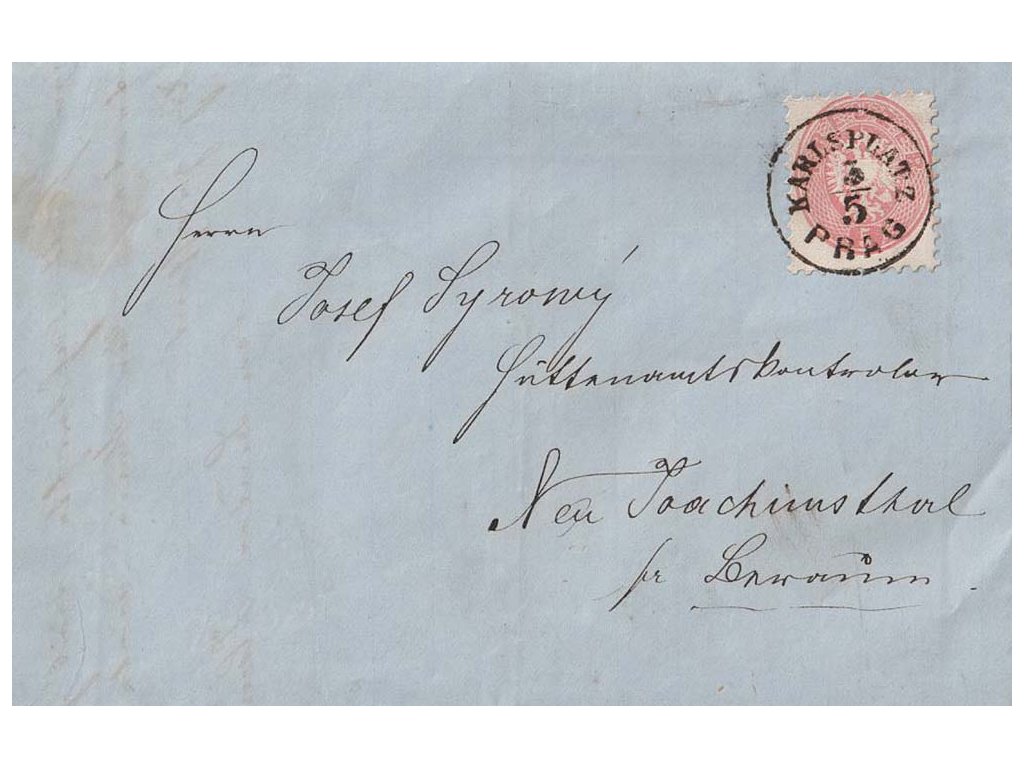 KARLSPLATZ
5
PRAG
Herrn
Josef Syrowý
Hüttenamtskontrolor
Neu Joachimsthal
pr Beraun